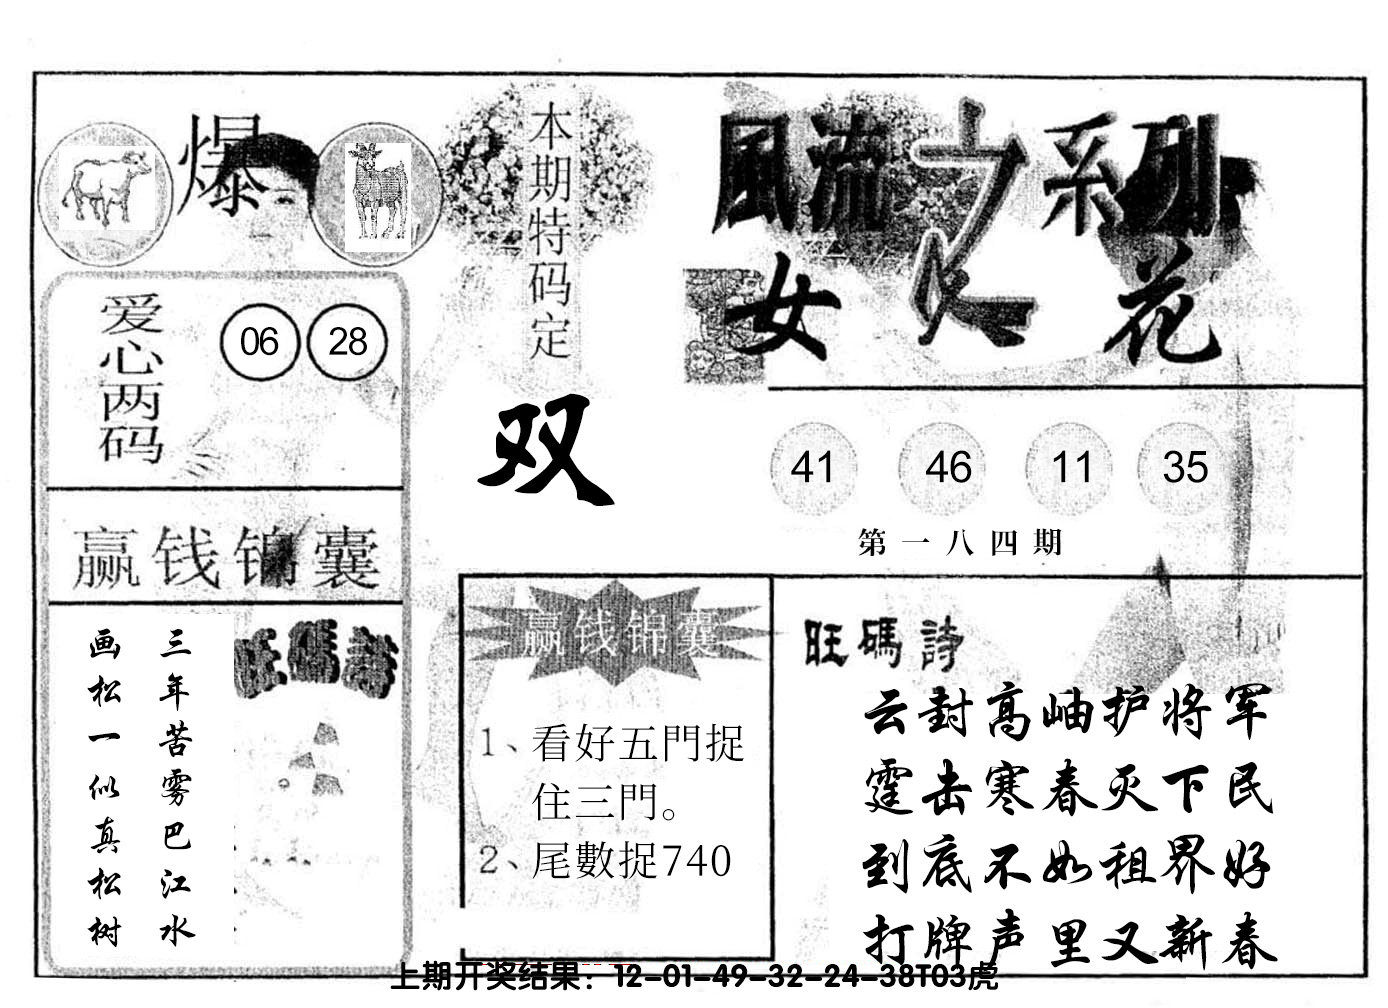 爆
本期特码定
双
風流之系列
女人花
爱心两码
06 28
41 46 11 35
第一八四期
赢钱锦囊
旺碼詩
三年苦雾巴江水
画松一似真松树
赢钱锦囊
1、看好五門捉
住三門。
2、尾數捉740
旺碼詩
云封高岫护将军
霆击寒春灭下民
到底不如租界好
打牌声里又新春
上期开奖结果：12-01-49-32-24-38T03虎